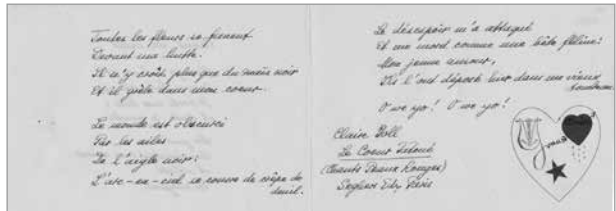 Toutes les fleurs se fanent
Devant ma hutte.
Il n'y croît plus que du maïs noir
Et il gèle dans mon coeur.
Le monde est obscurci
Par les ailes
De l'aigle noir:
L'arc-en-ciel se couvre de crêpe de
deuil.
Le désespoir m'a attaqué
Et me mord comme une bête féline:
Mon jeune amour,
Ils l'ont déposé hier dans un vieux
tombeau.
O we yo! O we yo!
Claire Goll
Le Coeur Tatoué
(Chants Peaux Rouges)
Seghers Paris
Yvan